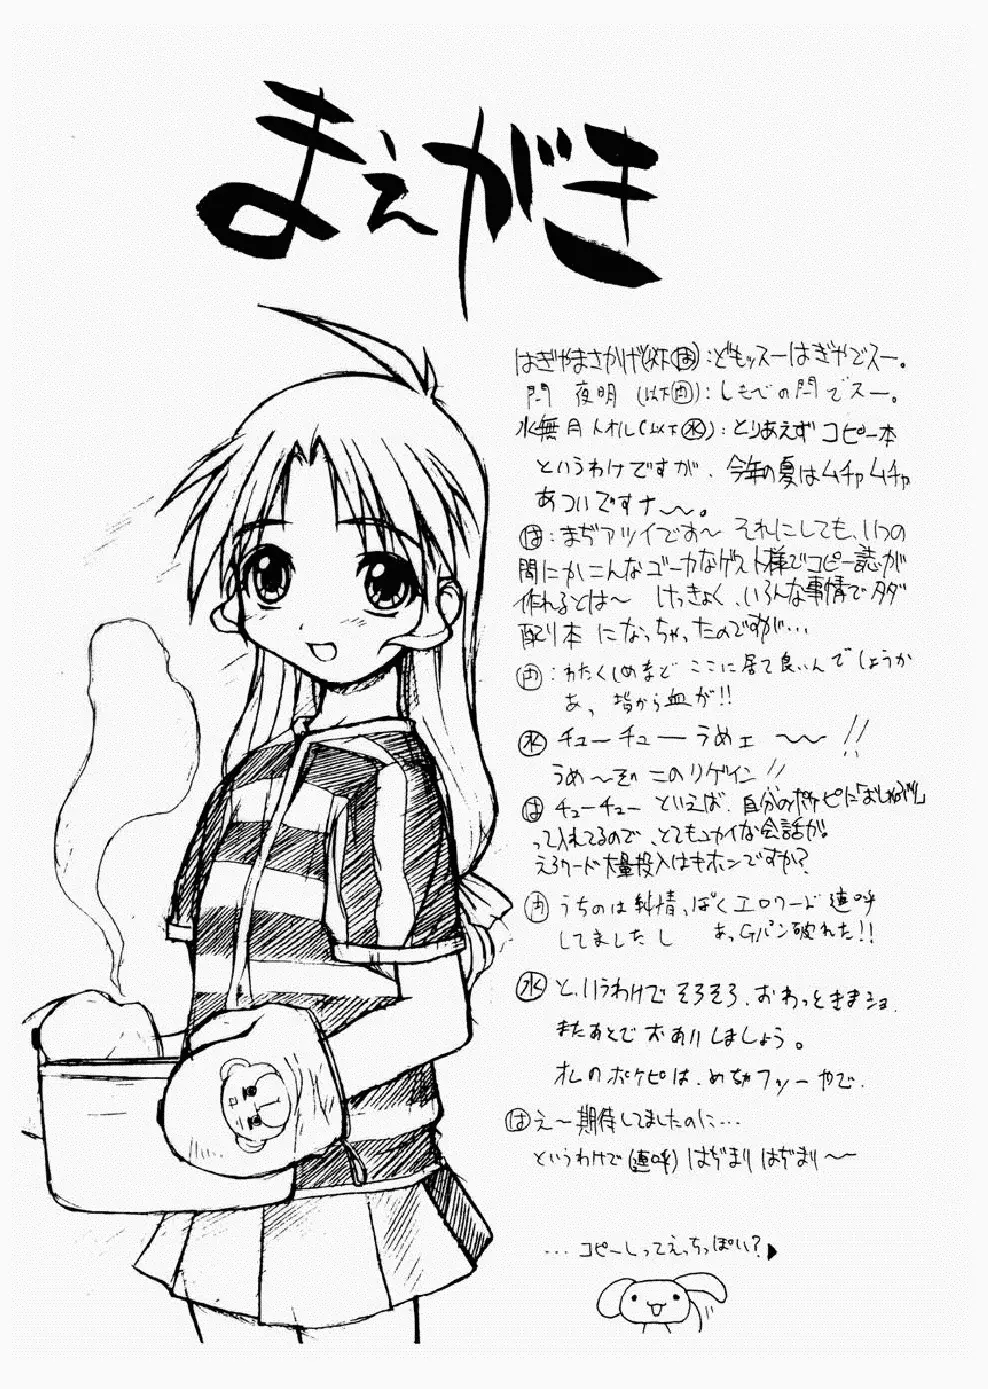 まえがき
はぎやまさかげ(以下は):どもッスーはぎやでスー。
閂 夜明 (以下円):しもべの閂でスー。
水無月トオル(以下水):とりあえずコピー本
というわけですが、今年の夏はムチャムチャ
あついですナ〜〜。
は:まぢアツイでお〜 それにしても、いつの
間にかこんなゴーカなゲスト様でコピー誌が
作れるとは〜 けっきょく、いろんな事情でタダ
配り本 になっちゃったのですが…
円:わたくしめまど ここに居て良いんでしょうか
あっ 指から血が!!
水 チューチュー うめェ 〜〜 !!
うめ〜ぞぃ このリゲイン!!
は チューチュー といえば、自分のポケピに「おしゃぶり」
って入れてるので、とてもユカイな会話が。
えろワード大量投入はキホンですか?
円 うちのは純情っぽくエロワード連呼
してましたし あっGパン破れた!!
水 と、いうわけで そろそろ、おわっときまショ、
またあとで お会いしましょう。
オレのポケピは、めちゃフツーやで、
は え〜期待してましたのに…
というわけで(連呼) はぢまり はぢまり〜〜
…コピーしってえっちっぽい?